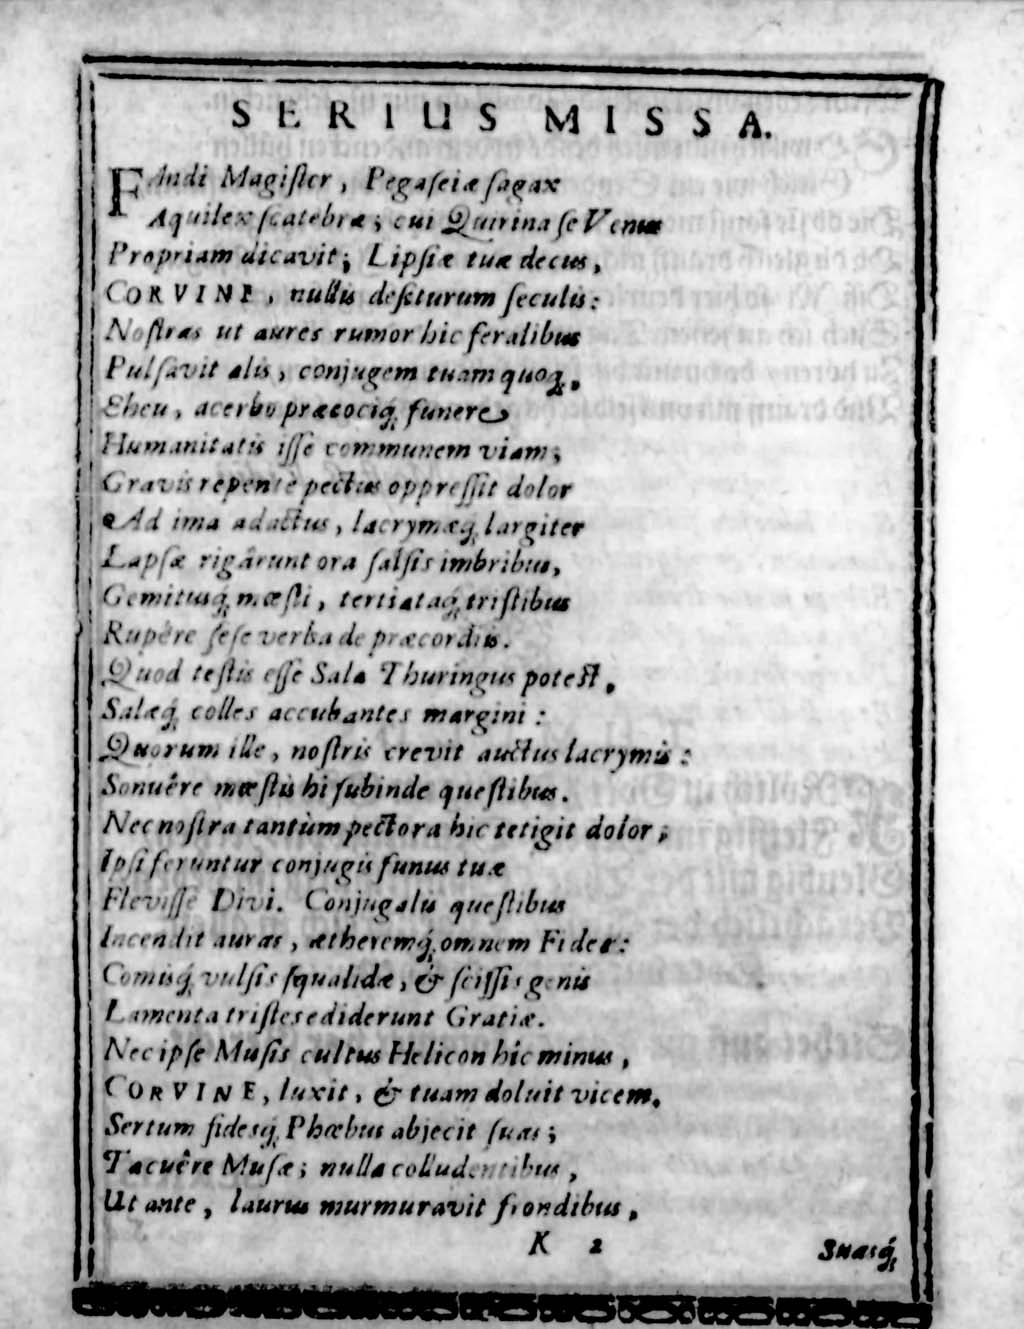 SERIUS MISSA.
FAndi Magiſter, Pegaſeiæ ſagax
Aquilex ſcatebræ; cui Quirina ſe Venus
Propriam dicavit; Lipſiæ tuæ decus,
CORVINE, nullis deſiturum ſeculis:
Noſtras ut aures rumor hic feralibus
Pulſavit alis, conjugem tuam quoq́,
Eheu, acerbo præcociq́ funere
Humanitatis iſſe communem viam;
Gravis repente pectus oppreſſit dolor
Ad ima adactus, lacrymæq́ largiter
Lapſæ rigârunt ora ſalſis imbribus,
Gemitusq́ mœſti, tertiataq́ triſtibus
Rupêre ſeſe verba de præcordiis.
Quod teſtis eſſe Sala Thuringus poteſt,
Salæq́ colles accubantes margini:
Quorum ille, noſtris crevit auctus lacrymis:
Sonuêre mœſtis hi ſubinde queſtibus.
Nec noſtra tantùm pectora hic tetigit dolor;
Ipſi feruntur conjugis funus tuæ
Fleviſſe Divi. Conjugalis queſtibus
Incendit auras, ætheremq́ omnem Fides:
Comisq́ vulſis ſqualidæ, & ſciſſis genis
Lamenta triſtes ediderunt Gratiæ.
Nec ipſe Muſis cultus Helicon hîc minus,
CORVINE, luxit, & tuam doluit vicem.
Sertum fidesq́ Phœbus abjecit ſuas;
Tacuêre Muſæ; nulla colludentibus,
Ut ante, laurus murmuravit frondibus,
K 2
Suasq́